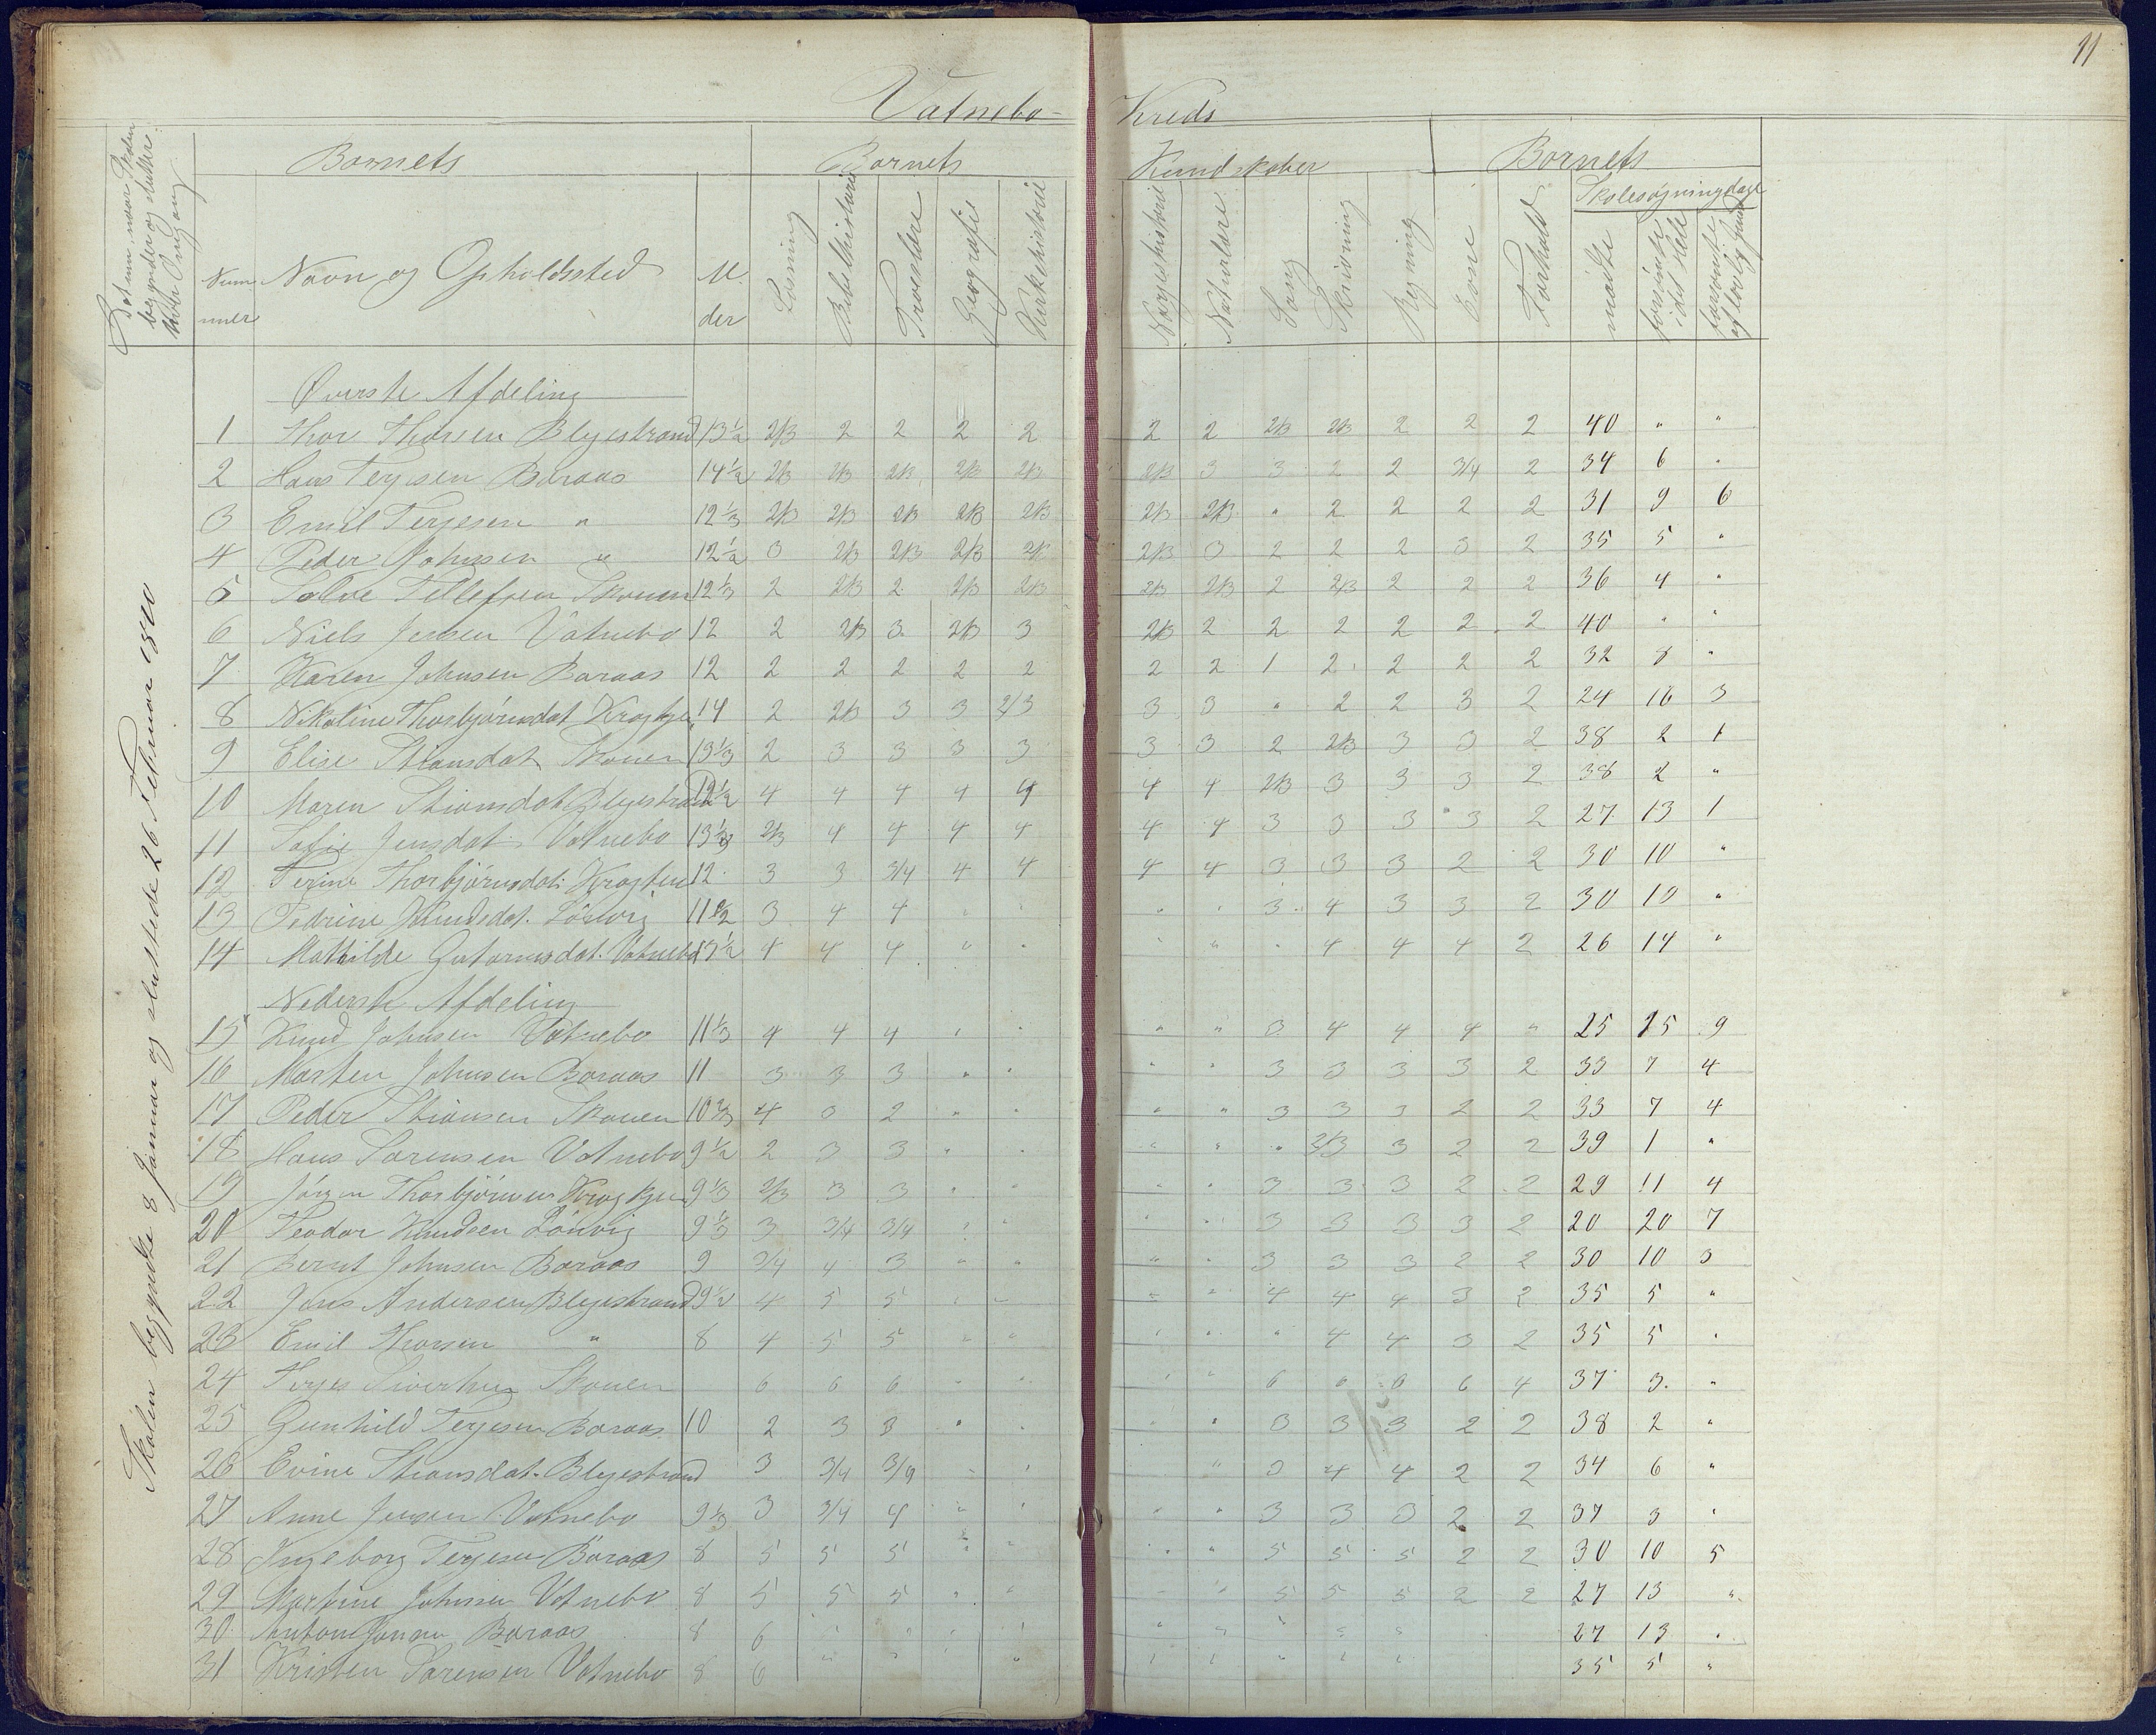 11
Vatnebo- Kreds
Datum, naar Skolen begynder og slutter hver Omgang
Barnets
Barnets Kundskaber
Barnets
Skolesøgningdage
Num- mer
Navn og Opholdssted
Al- der
Læsning
Bibelhistorie
Troeslære
Geografie
Kirkehistorie
Norgeshistorie
Naturlære
Sang
Skrivning
Regning
Evne
Forhold
mødte
forsømte i det Hele
forsømte af lovlig Grund
Skolen begyndte 8 Januar og sluttede 26 Februar 1880
Øverste Afdeling
1 Thor Thorsen Blegestrand 13½ 2/3 2 2 2 2 2 2 2/3 2/3 2 2 2 40 " "
2 Hans Terjesen Baraas 14½ 2/3 2/3 2/3 2/3 2/3 2/3 3 3 2 2 3/4 2 34 6 "
3 Emil Terjesen " 12⅓ 2/3 2/3 2/3 2/3 2/3 2/3 2/3 " 2 2 2 2 31 9 6
4 Peder Johnsen " 12½ 3 2/3 2/3 2/3 2/3 2/3 3 2 2 2 3 2 35 5 "
5 Salve Tellefsen Skouen 12⅓ 2 2/3 2 2/3 2/3 2/3 2/3 2 2/3 2 2 2 36 4 "
6 Niels Jensen Vatnebo 12 2 2/3 3 2/3 3 2/3 2 2 2 2 2 2 40 " "
7 Karen Johnsen Baraas 12 2 2 2 2 2 2 2 1 2 2 2 2 32 8 "
8 Nikoline Thorbjørnsdat Krogkjen 14 2 2/3 3 3 2/3 3 3 " 2 2 3 2 24 16 3
9 Elise Stiansdat Skouen 13⅓ 2 3 3 3 3 3 3 2 2/3 3 3 2 38 2 1
10 Maren Stiansdat Blegestrand 12½ 4 4 4 4 4 4 4 2/3 3 3 3 2 38 2 "
11 Sofie Jensdat. Vatnebo 13⅓ 2/3 4 4 4 4 4 4 3 3 3 3 2 27 13 1
12 Terine Thorbjørnsdat. Krogkjen 12 3 3 3/4 4 4 4 4 3 3 3 2 2 30 10 "
13 Pedrine Knudsdat. Lønvig 11½ 3 4 4 " " " " 3 4 3 3 2 30 10 "
14 Mathilde Gutormsdat. Vatnebo 13½ 4 4 4 " " " " " 4 4 4 2 26 14 "
Nederste Afdeling
15 Knud Johnsen Vatnebo 11⅓ 4 4 4 " " " " 3 4 4 4 " 25 15 9
16 Morten Johnsen Baraas 11 3 3 3 " " " " 3 3 3 3 2 33 7 4
17 Peder Stiansen Skouen 10⅔ 4 3 2 " " " " 3 3 3 2 2 33 7 4
18 Hans Sørensen Vatnebo 9½ 2 3 3 " " " " " 3/3 3 2 2 39 1 "
19 Jörgen Thorbjörnsen Krogkjen 9⅓ 2/3 3 3 " " " " 3 3 3 2 2 29 11 4
20 Teodor Knudsen Lønvig 9⅓ 3 3/4 3/4 " " " " 3 3 3 3 2 20 20 7
21 Bernt Johnsen Baraas 9 3/4 4 3 " " " " 3 3 3 2 2 30 10 3
22 Jens Andersen Blegestrand 9½ 4 5 5 " " " " 4 4 4 3 2 35 5 "
23 Emil Thorsen " 8 4 5 5 " " " " " 4 4 3 2 35 5 "
24 Terjes Siverthsen Skouen 6 6 6 " " " " 6 6 6 6 4 37 3 "
25 Gunhild Terjesen Baraas 10 2 3 3 " " " " 3 3 3 2 2 38 2 "
26 Evine Stiansdat. Blegestrand 3 3/4 3/4 " " " 3 4 4 2 2 34 6 "
27 Anne Jensen Vatnebo 9⅓ 3 3/4 4 " " " " 3 3 3 2 2 37 3 "
28 Ingeborg Terjesen Baraas 8 5 5 5 " " " " 5 5 5 2 2 30 10 5
29 Martine Johnsen Vatnebo 8 5 5 5 " " " " 5 5 5 2 2 27 13 "
30 Anton Jonsen Baraas 8 6 " " " " " " " " " 27 13 "
31 Kristen Sørensen Vatnebo 8 6 " " " " " " " " " 35 5 "